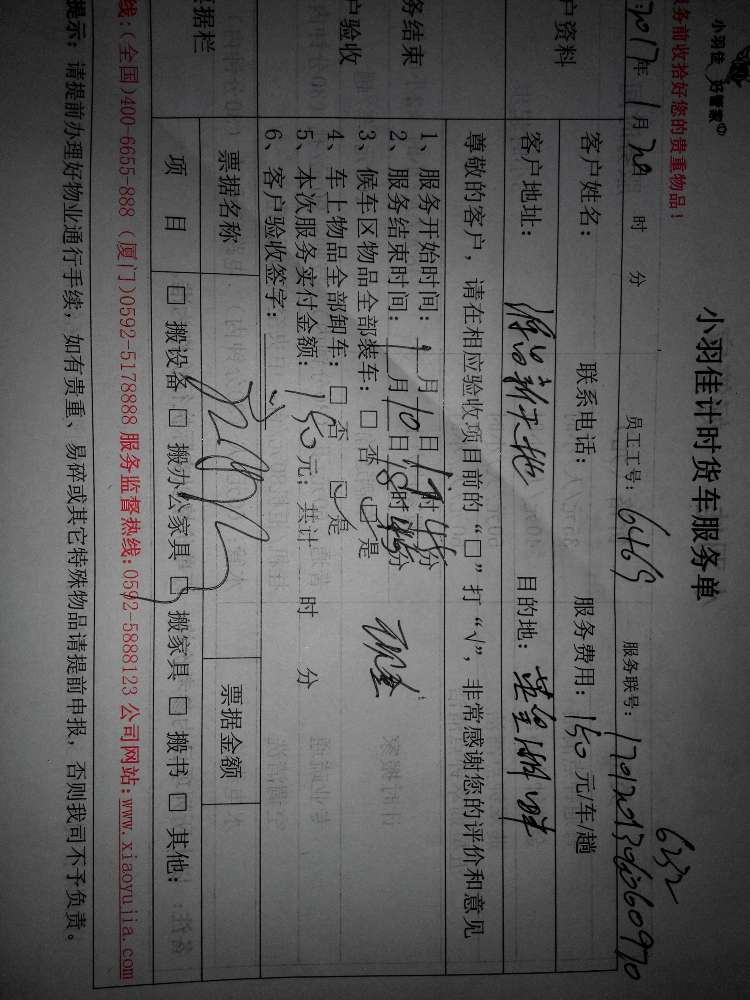 小羽佳 好管家
服务前收拾好您的贵重物品!
小羽佳计时货车服务单
2017年 1月 20 时 分 员工工号: 6469 服务联号:
6232
户资料
客户姓名: 联系电话: 服务费用: 150 元/车/趟
客户地址: 新天地 目的地:
尊敬的客户,请在相应验收项目前的“□”打“√”,非常感谢您的评价和意见
务结束
户验收
1、服务开始时间: 月 日 时 分
2、服务结束时间: 1月10日18时 分
3、候车区物品全部装车: □ 否 ☑ 是
4、车上物品全部卸车: □ 否 ☑ 是
5、本次服务实付金额: 150 元; 共计 时 分
6、客户验收签字:
据栏
票据名称 票据金额
项 目 □ 搬设备 □ 搬办公家具 □ 搬家具 □ 搬书 □ 其他:
线:(全国)400-6655-888 (厦门)0592-5178888 服务监督热线:0592-5888123 公司网站:www.xiaoyujia.com
提示: 请提前办理好物业通行手续,如有贵重、易碎或其它特殊物品请提前申报,否则我司不予负责。